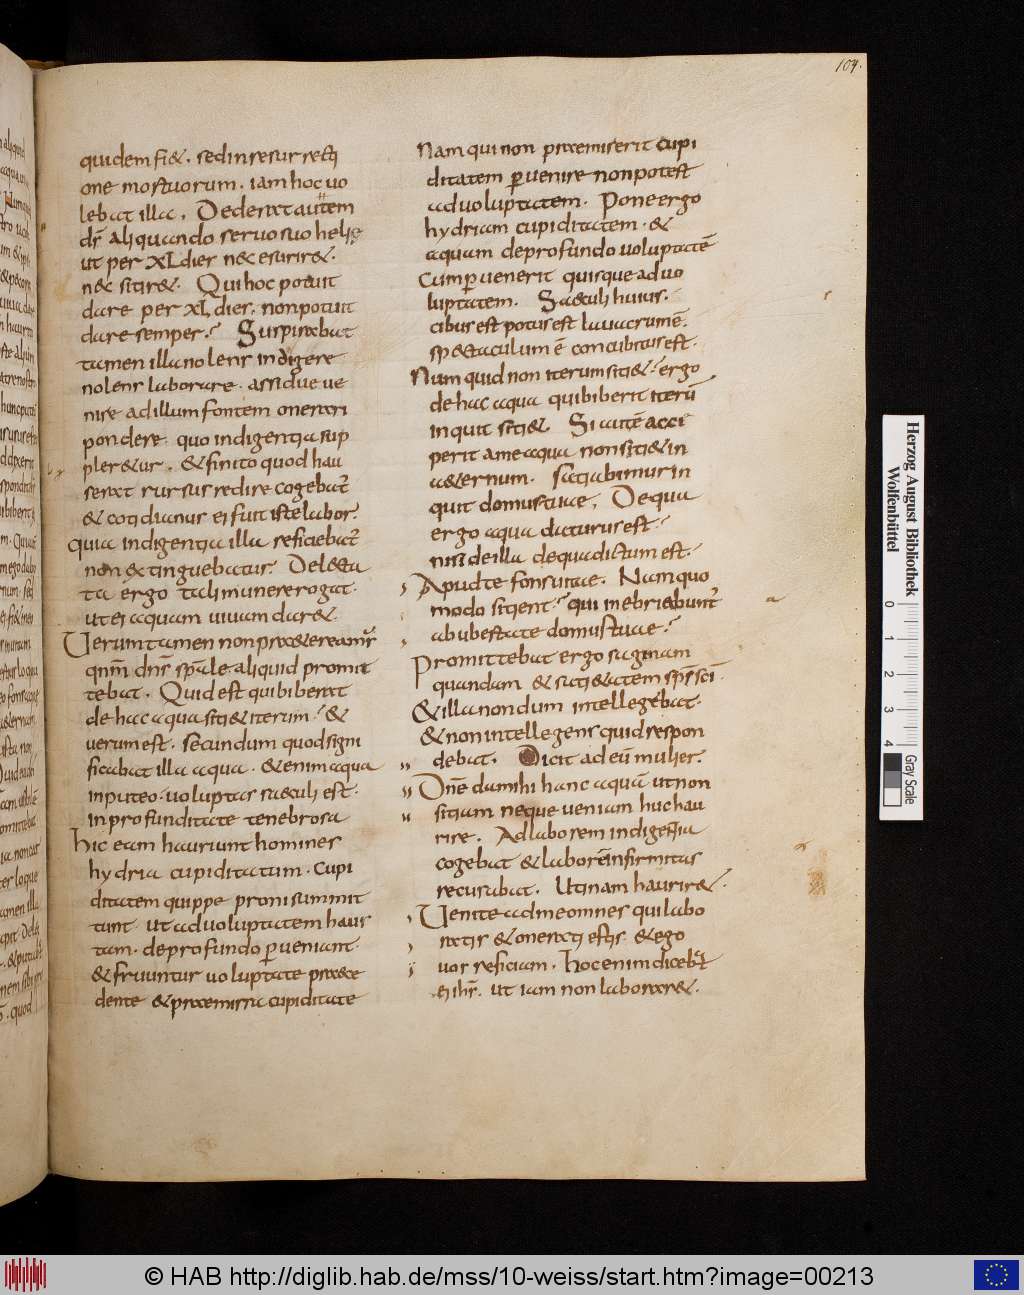 104.
quidem fi&. sed in resurrecti
one mortuorum. iam hoc uo
lebat illa. Dederat autem
dñs aliquando seruo suo heliae
ut per XL dies nec esurir&.
nec sitir&. Qui hoc potuit
dare per XL dies. non potuit
dare semper? Suspirabat
tamen illa nolens indigere
nolens laborare. assidue ue
nire ad illum fontem onerari
pondere. quo indigentia sup
pler&ur. & finito quod hau
serat rursus redire cogebat̃
& cotidianus ei fuit iste labor.
quia indigentia illa reficiebat̃
non extinguebatur. Delecta
ta ergo tali munere rogat.
ut ei aquam uiuam dar&.
Verum tamen non pr&ereamus
qnm̄ dn̄s sp̄ale aliquid promit
tebat. Quid est qui biberit
de hac aqua siti& iterum? &
uerum est. secundum quod signi
ficabat illa aqua. & enim aqua
in puteo. uoluptas saeculi est.
in profunditate tenebrosa
hic eam hauriunt homines
hydria cupiditatum. Cupi
ditatem quippe proni summit
tunt ut ad uoluptatem haus
tam. de profundo p̱ueniant.
& fruuntur uoluptate praece
dente & praemissa cupiditate
Nam qui non praemiserit cupi
ditatem p̱uenire non potest
ad uoluptatem. Pone ergo
hydriam cupiditatem. &
aquam de profundo uoluptatē
Cum p̱uenerit quisque ad uo
luptatem. Saeculi huius.
cibus est potus est lauacrum ē.
sp&taculum ē concubitus est.
Num quid non iterum siti&? ergo
de hac aqua qui biberit iterū
inquit siti&. Si autē acci
perit a me aqua non siti& in
a&ernum. satiabimur in
quit domus tuae. De qua
ergo aqua daturus est?
nisi de illa de qua dictum est.
Apud te fons uitae. Nam quo
modo sitient? qui inebriabunt̃
ab ubertate domus tuae?
Promittebat ergo saginam
quandam & saci&atem sp̄s sc̄i.
& illa nondum intellegebat.
& non intellegens quid respon
debat. Dicit ad eū mulier.
Dn̄e da mihi hanc aquā ut non
sitiam neque ueniam huc hau
rire. Ad laborem indigentia
cogebat & laborē infirmitas
recusabat. Utinam haurir&.
Venite ad me omnes qui labo
ratis & onerati estis. & ego
uos reficiam. hoc enim diceb̃t
ei ih̄s. ut iam non laborar&.
Herzog August Bibliothek
Wolfenbüttel
0 1 2 3 4
Gray Scale
© HAB http://diglib.hab.de/mss/10-weiss/start.htm?image=00213